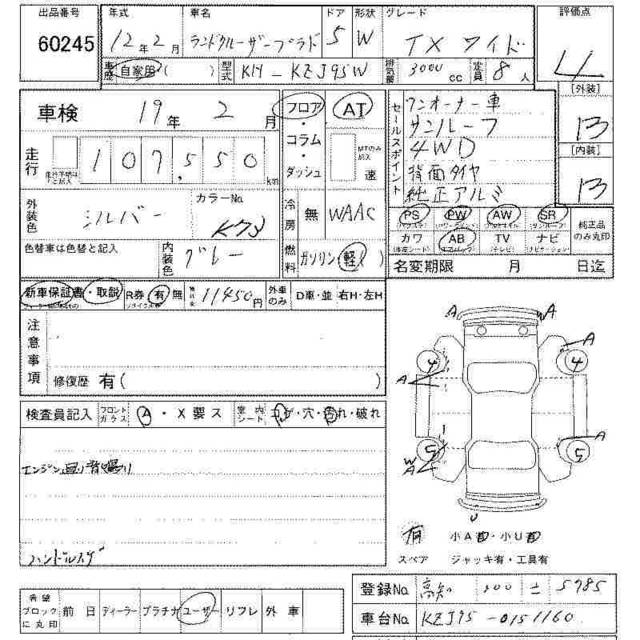 出品番号 60245
年式 12年2月
車名 ランドクルーザープラド
ドア 5 形状 W
グレード TX ワイド
評価点 4
車歴 自家用( )
型式 KH-KZJ95W
排気量 3000cc 定員 8人
[外装] B
[内装] B
車検 19年 2月
走行 107,550km
走行不明時はここに記入
外装色 シルバー カラーNo
色替車は色替と記入
内装色 グレー
フロア・コラム・ダッシュ
AT
MTのみ記入 速
冷房 無 WAAC
燃料 ガソリン 軽( )
セールスポイント
ワンオーナー車
サンルーフ
4WD
背面タイヤ
純正アルミ
PS PW AW SR
カワ AB TV ナビ
純正品のみ丸印
名変期限 月 日迄
新車保証書・取説
R券 有 無
11450円
外車のみ D車・並 右H・左H
注意事項
修復歴 有( )
検査員記入
フロントガラス A・X要ス
室内シート コゲ・穴・汚れ・破れ
ハンドルスレ
A A
4 4 A
A
5 5 A
W
A
U
有 小A・小U
スペア ジャッキ有・工具有
希望ブロックに丸印 前日 ディーラー プラチナ ユーザー リフレ 外車
登録No 高知 300 5985
車台No KZJ95-0151160